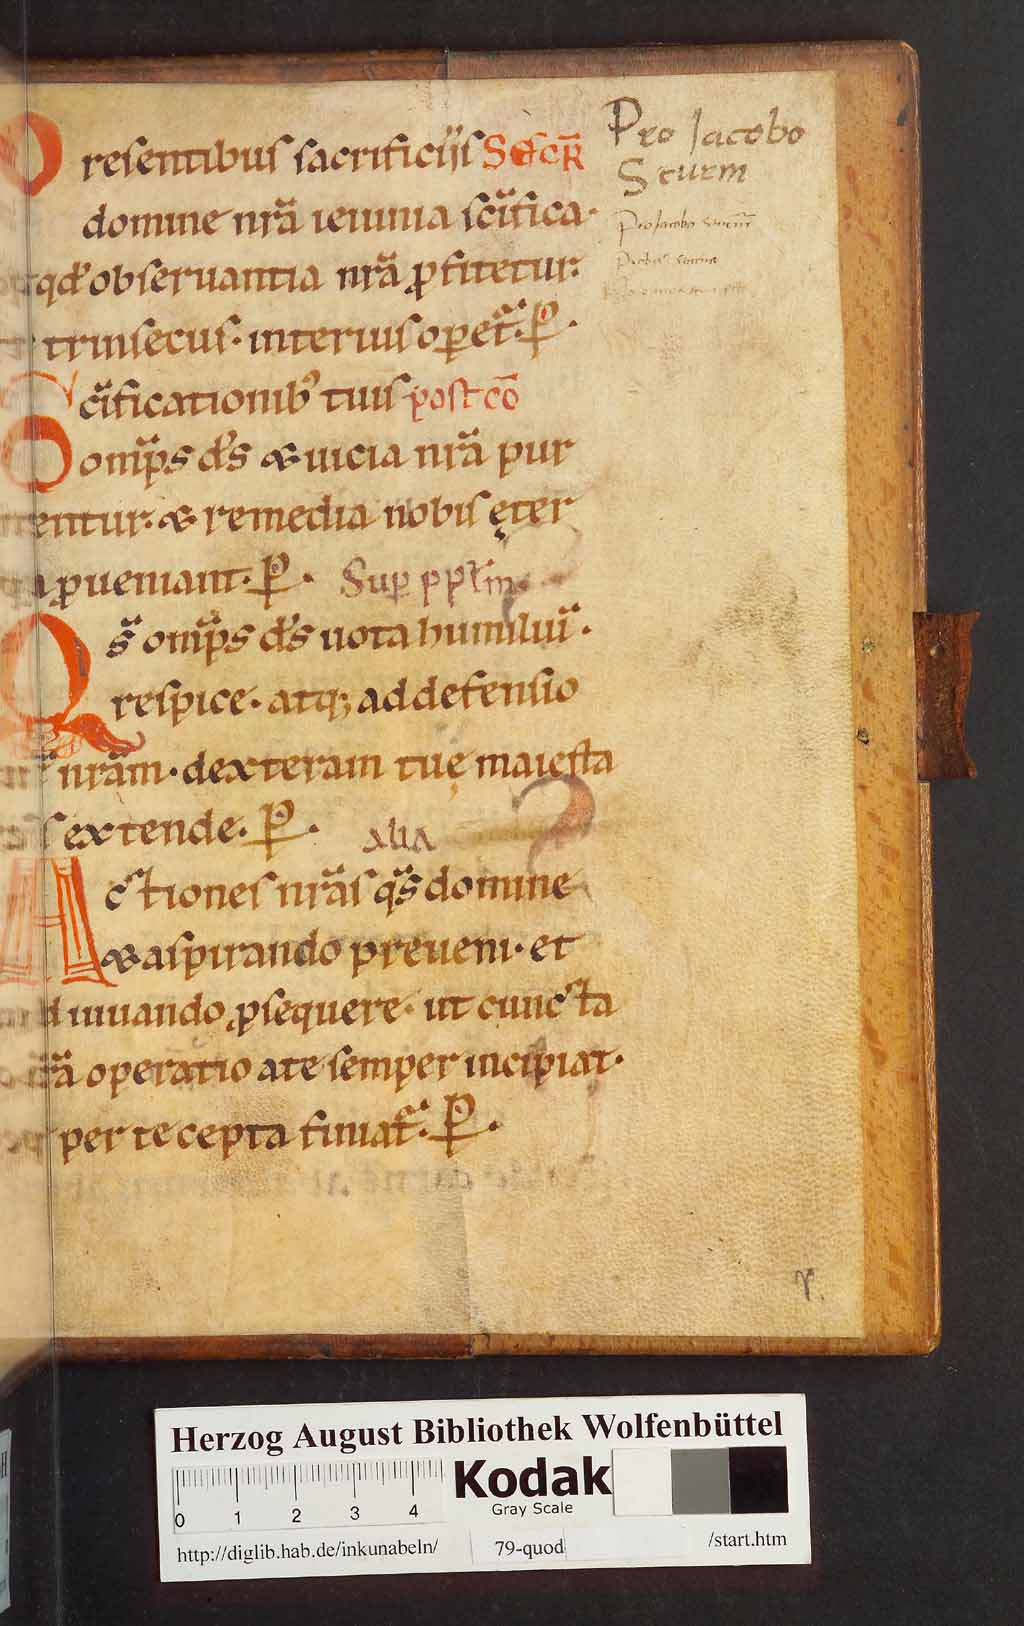 Presentibus sacrificiis SECR̄
domine nrā ieiunia scīfica·
qd' obseruantia nrā ꝓfitetur·
trinsecus· interius oꝑet᷑· P·
Scīficationib' tuis post cō
Omīps ds̄ & uicia nrā pur
entur· & remedia nobis ęter
a ꝓueniant· P· Suꝑ ppłm
Qs̄ omīps ds̄ uota humiliū·
respice· atq; ad defensio
nrām· dexteram tuę maiesta
s extende· P· alia
Actiones nrās qs̄ domine
& aspirando preueni· et
d iuuando ꝓsequere· ut cuncta
rā operatio a te semper incipiat·
per te cepta finiat᷑· P·
Pro Jacobo
Sturm
Pro Jacobo Sturm
r.
Herzog August Bibliothek Wolfenbüttel
Kodak
Gray Scale
0 1 2 3 4
http://diglib.hab.de/inkunabeln/ 79-quod /start.htm